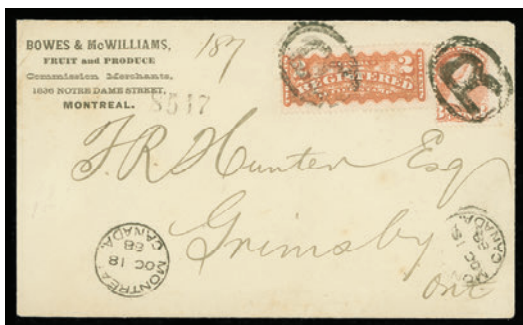 BOWES & McWILLIAMS,
FRUIT and PRODUCE
Commission Merchants,
1836 NOTRE DAME STREET,
MONTREAL.
187
8517
2
REGISTERED
R
F.R. Hunter Esq
Grimsby
Ont
MONTREAL
OC 18
88
CANADA
MONTREAL
OC 18
88
CANADA